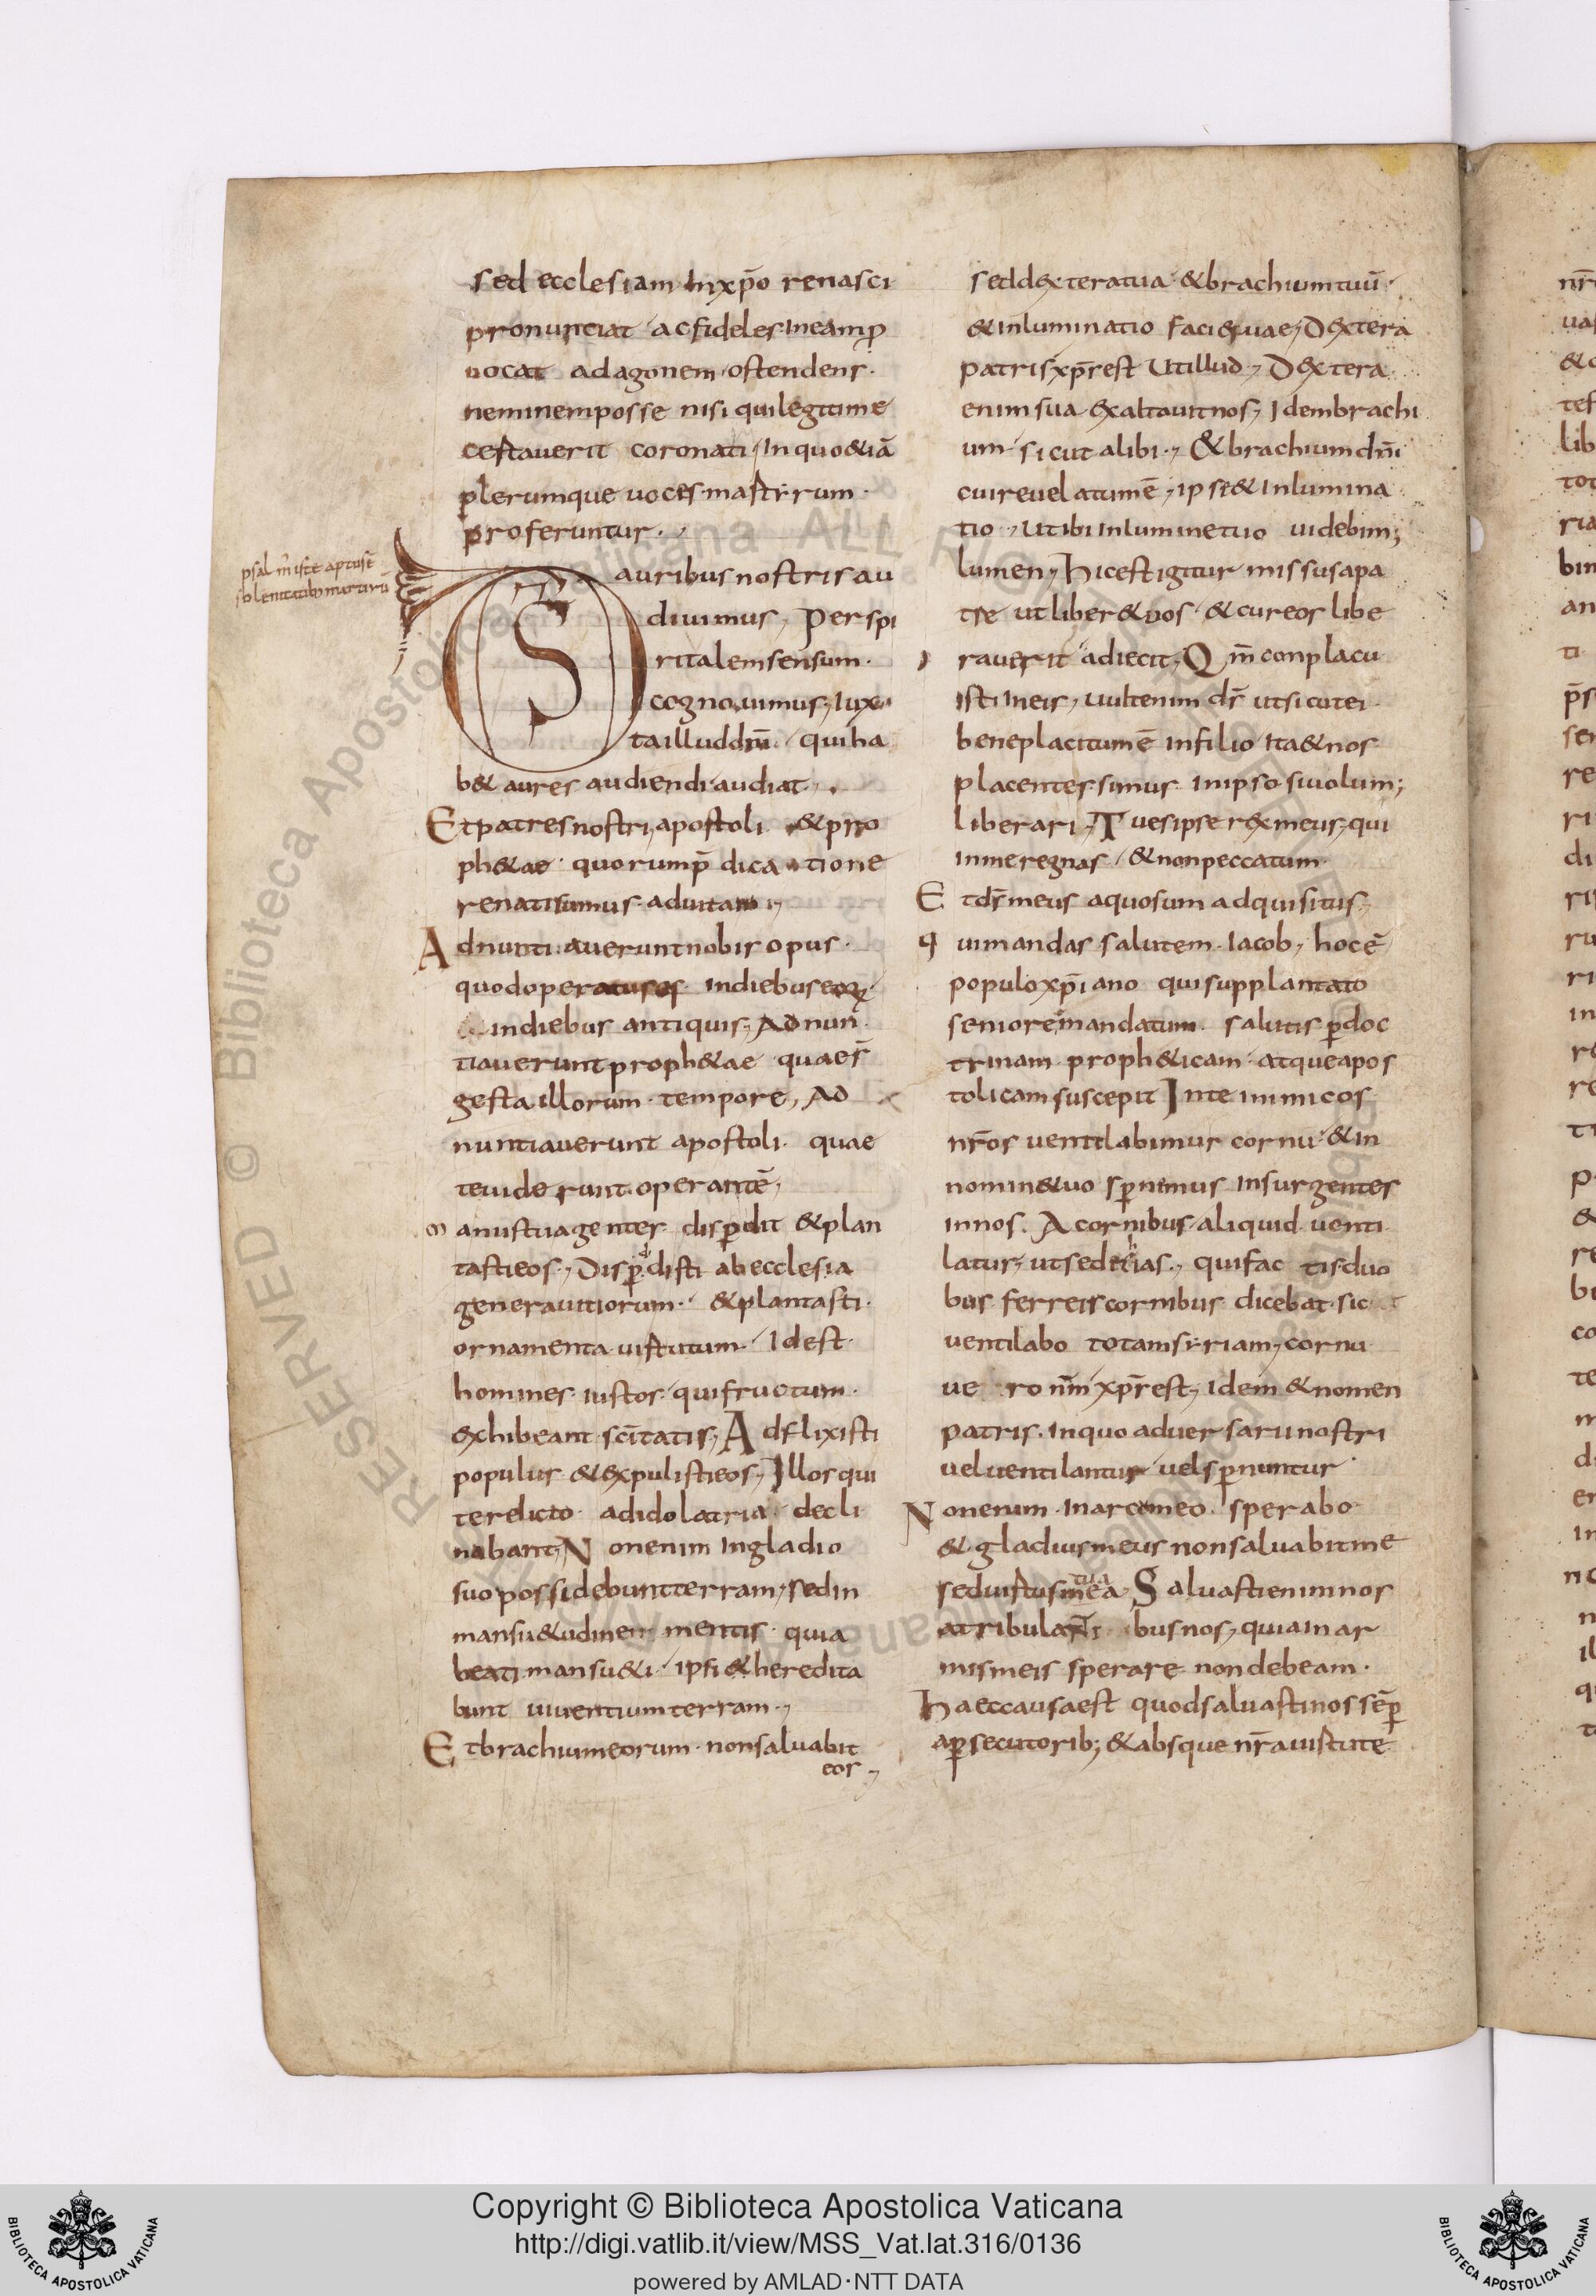 sed ecclesiam inxp̄o renasci
pronuntiat ac fideles ineamp̱
uocat ad agonem ostendens.
neminem posse nisi qui legitime
certauerit coronati. In quo &iā
plerumque uoces martyrum.
proferuntur.
psal m̄ iste aptus ē
solemnitatib; martirū
DS auribus nostris au
diuimus, Per spi
ritalem sensum.
cognouimus, Iux
ta illud dn̄i. qui ha
b& aures audiendi audiat.
Et patres nostri, apostoli &pro
ph&ae quorum p̄dicatione
renati sumus ad uitam
Adnuntiauerunt nobis opus.
quod operatus es. In diebus eoꝝ.
indiebus antiquis, Adnun
tiauerunt proph&ae quaesr̄
gesta illorum tempore, Ad
nuntiauerunt apostoli. quae
te uiderunt operantē,
Manus tua gentes disp̱dit &plan
tasti eos, Disp̱didisti ab ecclesia
genera uitiorum. &plantasti.
ornamenta uirtutum Id est
homines iustos qui fructum.
exhibeant sc̄itatis, Adflixisti
populus &expulisti eos, Illos qui
te relicto ad idolatria decli
nabant, Non enim In gladio
suo possidebunt terram, sed in
mansu&udinem mentis quia
beati mansu&i. ipsi &heredita
bunt uiuentium terram.,
Et brachium eorum. non saluabit
eos,
sed dextera tua &brachium tuū.
&inluminatio faci&uae, Dextera
patris xp̄s est Ut illud, Dextera
enim sua exaltauit nos, Idem brachi
um. sicut alibi., &brachium dn̄i
cui reuelatum ē, ipse &Inlumina
tio, Ut ibi In lumine tuo uidebim;
lumen, Hic est igitur missus a pa
tre ut liber& nos &cur eos libe
rauerit adiecit, Qm̄ conplacu
isti In eis, uult enim ds̄ ut sicut ei
bene placitum ē in filio Ita &nos
placentes simus In ipso si uolum;
liberari, Tu es ipse rex meus, qui
in me regnas, &non peccatum
Et ds̄ meus a quo sum adquisitus,
Qui mandas salutem Iacob, hoc ē
populo xp̄iano qui supplantato
seniore mandatum. salutis p̱doc
trinam proph&icam atque apos
tolicam suscepit In te inimicos
nr̄os uentilabimus cornu &in
nomin&uo sp̱nemus Insurgentes
in nos. A cornibus aliquid uenti
latur, ut sedechias., qui factis duo
bus ferreis cornibus dicebat. sic
uentilabo totam syriam, cornu
uero nr̄m xp̄s est, idem &nomen
patris. In quo aduersarii nostri
uel uentilantur uel sp̱nuntur
Non enim In arcu meo. sperabo
&gladius meus non saluabit me
sed uirtus mea tua Saluasti enim nos
a tribulantibus nos, quia in ar
mis meis sperare non debeam.
Haec causa est quod saluasti nos sēp̱
a p̱secutorib; &absque nr̄a uirtute
Copyright © Biblioteca Apostolica Vaticana
http://digi.vatlib.it/view/MSS_Vat.lat.316/0136
powered by AMLAD·NTT DATA
BIBLIOTECA APOSTOLICA VATICANA
BIBLIOTECA APOSTOLICA VATICANA